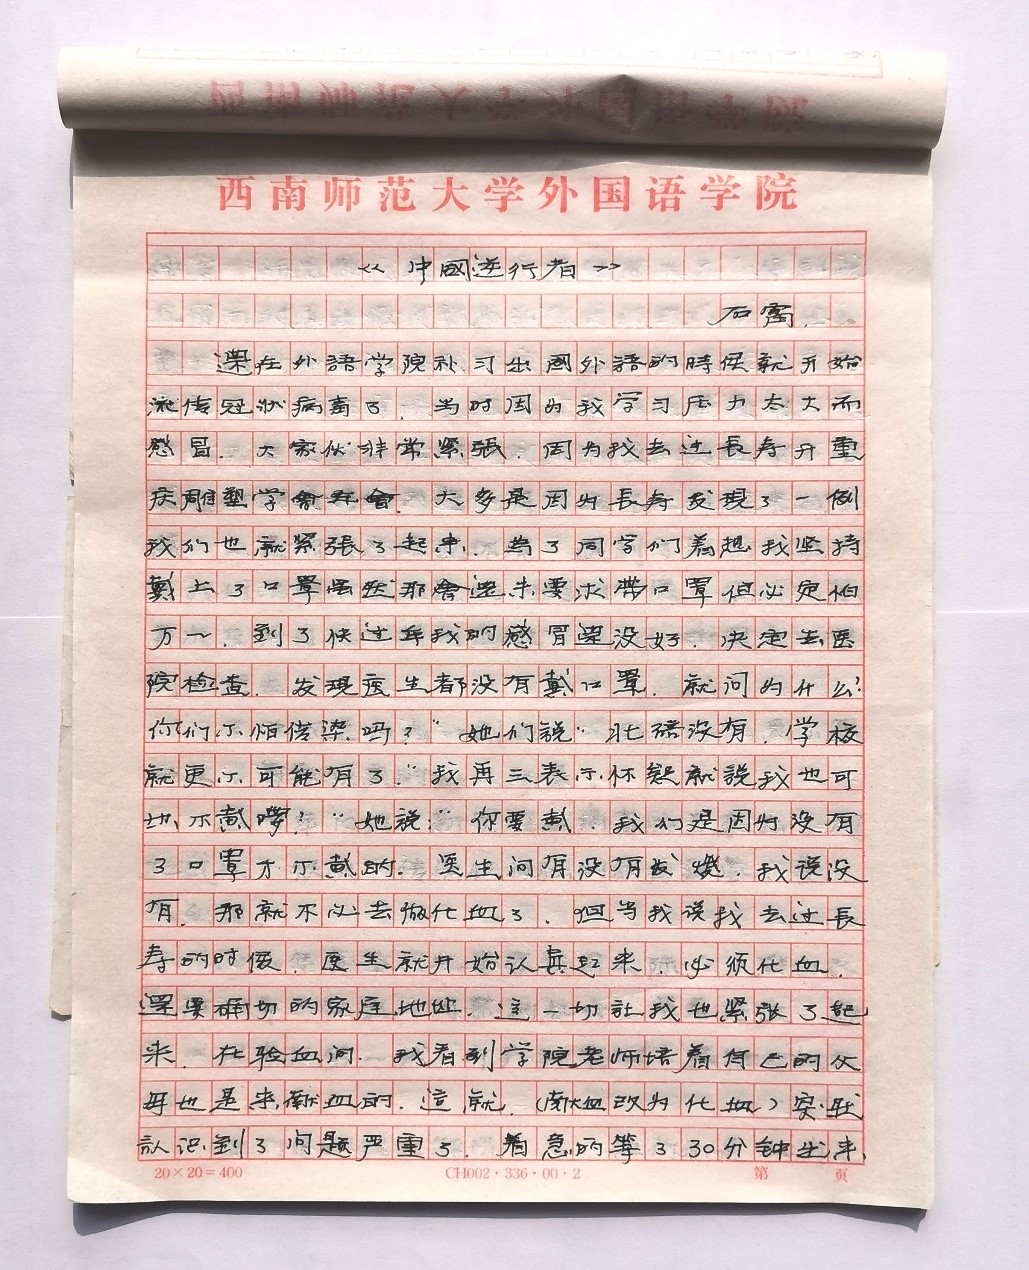 西南师范大学外国语学院
《中國逆行者》
石富
還在外語学院补习出國外語的時候就开始
流传冠状病毒了.当时因为我学习压力太大而
感冒.大家伙非常紧張.因为我去过長寿开重
庆雕塑学會年會.大多是因为長寿发現了一例
我们也就緊張了起来.为了同学们着想我坚持
戴上了口罩虽然那會還未要求带口罩但必定怕
万一.到了快过年我的感冒還没好.决定去医
院检查.发現医生都没有戴口罩.就问为什么?
你们不怕传染吗?"她们説"北碚没有.学校
就更不可能有了."我再三表示怀疑就説我也可
以不戴啰?"她説:"你要戴.我们是因为没有
了口罩才不戴的.医生问有没有发烧.我説没
有.那就不必去做化血了.但当我说我去过長
寿的时候.医生就开始认真起来.必须化血.
還要确切的家庭地址.这一切讓我也緊张了起
来.在验血间.我看到学院老师培着自己的父
母也是来献血的.這就.(献血改为化血)实
認识到了问题严重了.着急的等了30分钟出来.
20×20=400
CH002·336·00·2
第 页